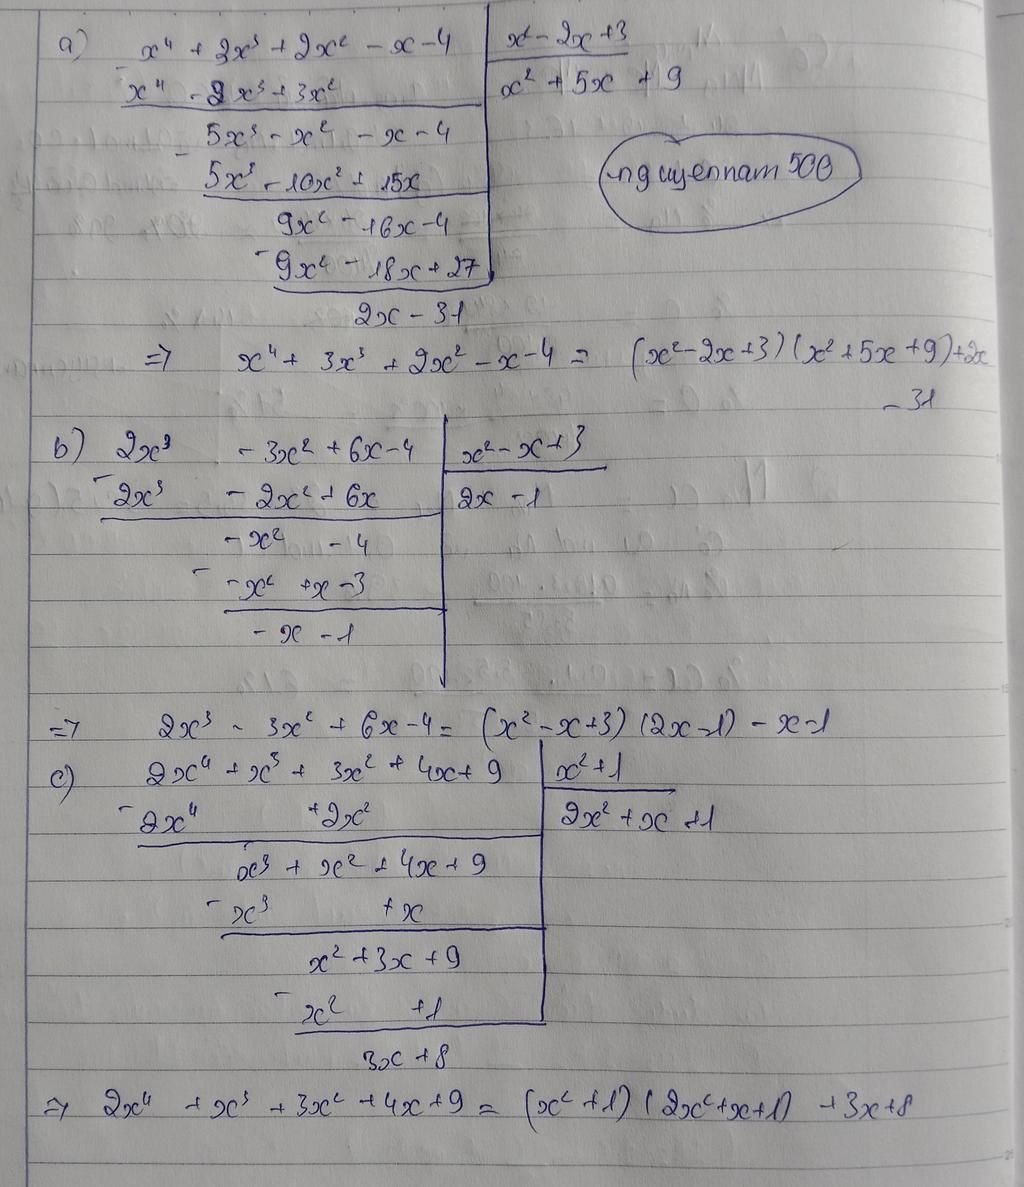 a) x⁴ + 3x³ + 2x² - x - 4 | x² - 2x + 3
- x⁴ - 2x³ + 3x² | x² + 5x + 9
5x³ - x² - x - 4
- 5x³ - 10x² + 15x
9x² - 16x - 4
- 9x² - 18x + 27
2x - 31
=> x⁴ + 3x³ + 2x² - x - 4 = (x² - 2x + 3)(x² + 5x + 9) + 2x
- 31
b) 2x³ - 3x² + 6x - 4 | x² - x + 3
- 2x³ - 2x² + 6x | 2x - 1
- x² - 4
- - x² + x - 3
- x - 1
=> 2x³ - 3x² + 6x - 4 = (x² - x + 3)(2x - 1) - x - 1
c) 2x⁴ + x³ + 3x² + 4x + 9 | x² + 1
- 2x⁴ + 2x² | 2x² + x + 1
x³ + x² + 4x + 9
- x³ + x
x² + 3x + 9
- x² + 1
3x + 8
=> 2x⁴ + x³ + 3x² + 4x + 9 = (x² + 1)(2x² + x + 1) + 3x + 8